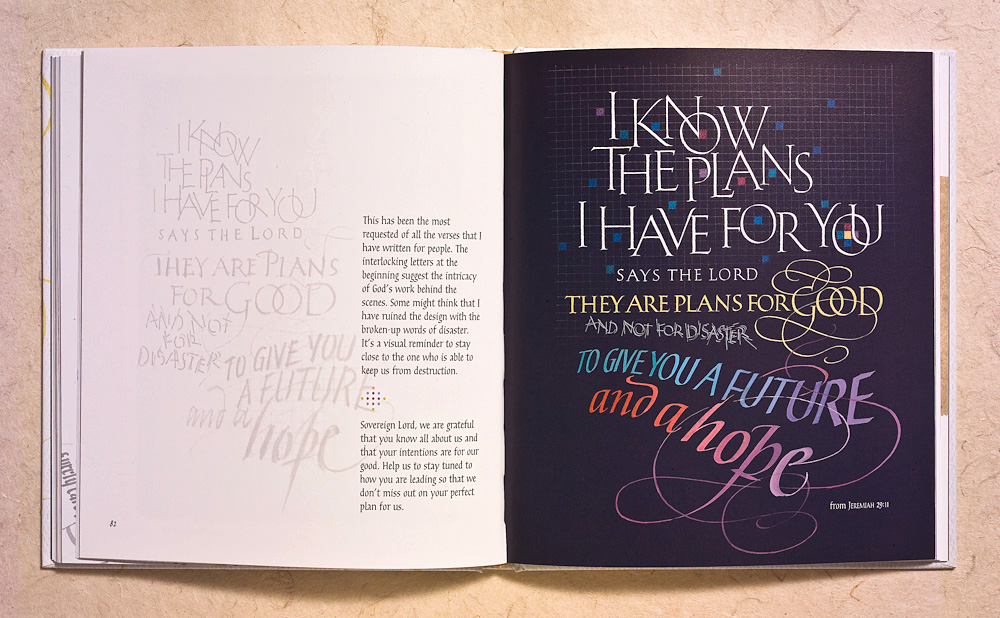 I KNOW
THE PLANS
I HAVE FOR YOU
SAYS THE LORD
THEY ARE PLANS
FOR GOOD
AND NOT
FOR
DISASTER
TO GIVE YOU
A FUTURE
and a
hope
This has been the most
requested of all the verses that I
have written for people. The
interlocking letters at the
beginning suggest the intricacy
of God's work behind the
scenes. Some might think that I
have ruined the design with the
broken-up words of disaster.
It's a visual reminder to stay
close to the one who is able to
keep us from destruction.
Sovereign Lord, we are grateful
that you know all about us and
that your intentions are for our
good. Help us to stay tuned to
how you are leading so that we
don't miss out on your perfect
plan for us.
82
I KNOW
THE PLANS
I HAVE FOR YOU
SAYS THE LORD
THEY ARE PLANS FOR GOOD
AND NOT FOR DISASTER
TO GIVE YOU A FUTURE
and a hope
from JEREMIAH 29:11